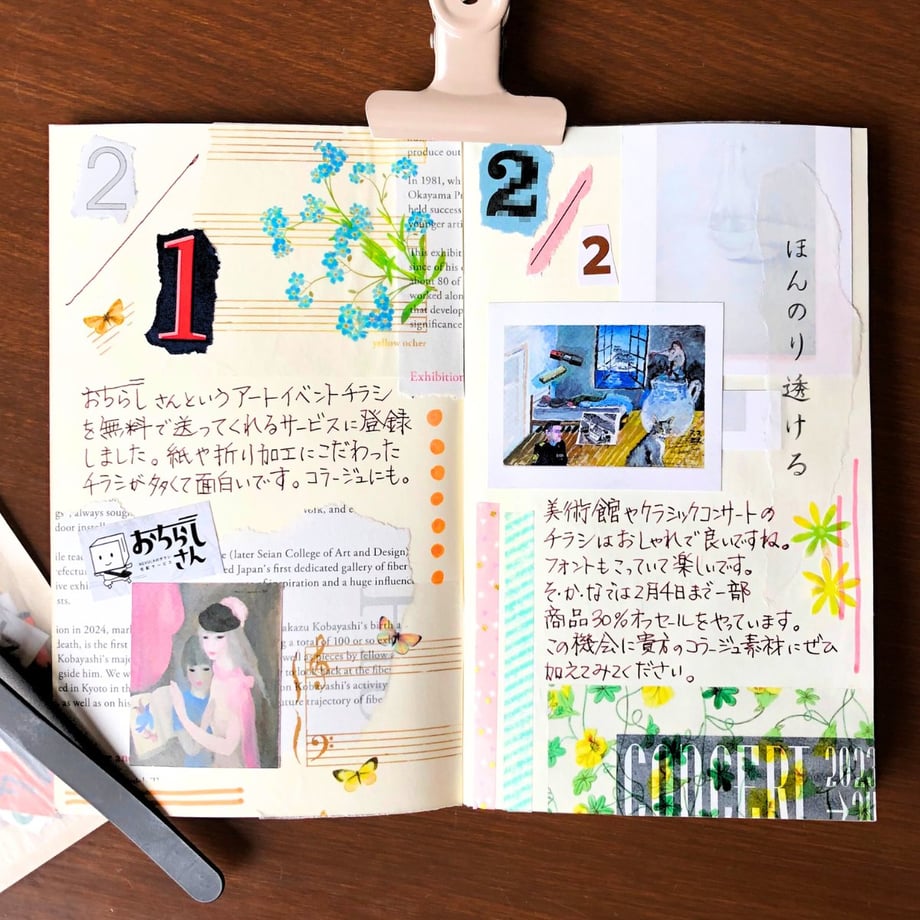 2
1
produce out
In 1981, wh
Okayama Pr
held success
younger arti
This exhibit
since of his
about 80 of
worked alon
that develop
significance
yellow ocher
Exhibition
おちらしさんというアートイベントチラシ
を無料で送ってくれるサービスに登録
しました。紙や折り加工にこだわった
チラシが多くて面白いです。コラージュにも。
always sough
work, and e
door instal
おちらし
さん
(later Seian College of Art and Design)
ed Japan's first dedicated gallery of fiber
of inspiration and a huge influenc
sts.
ion in 2024, mar
akazu Kobayashi's birth a
death, is the first
g a total of 100 or so exh
Kobayashi's majo
as pieces by fellow a
gside him. We w
to look back at the fiber
ed in Kyoto in th
Kobayashi's activity
as well as on his
ature trajectory of fibe
2
2
ほんのり透ける
美術館やクラシックコンサートの
チラシはおしゃれで良いですね。
フォントもこっていて楽しいです。
そ・か・な・では2月4日まで一部
商品30%オフセールをやっています。
この機会に貴方のコラージュ素材にぜひ
加えてみてください。
CONCERT